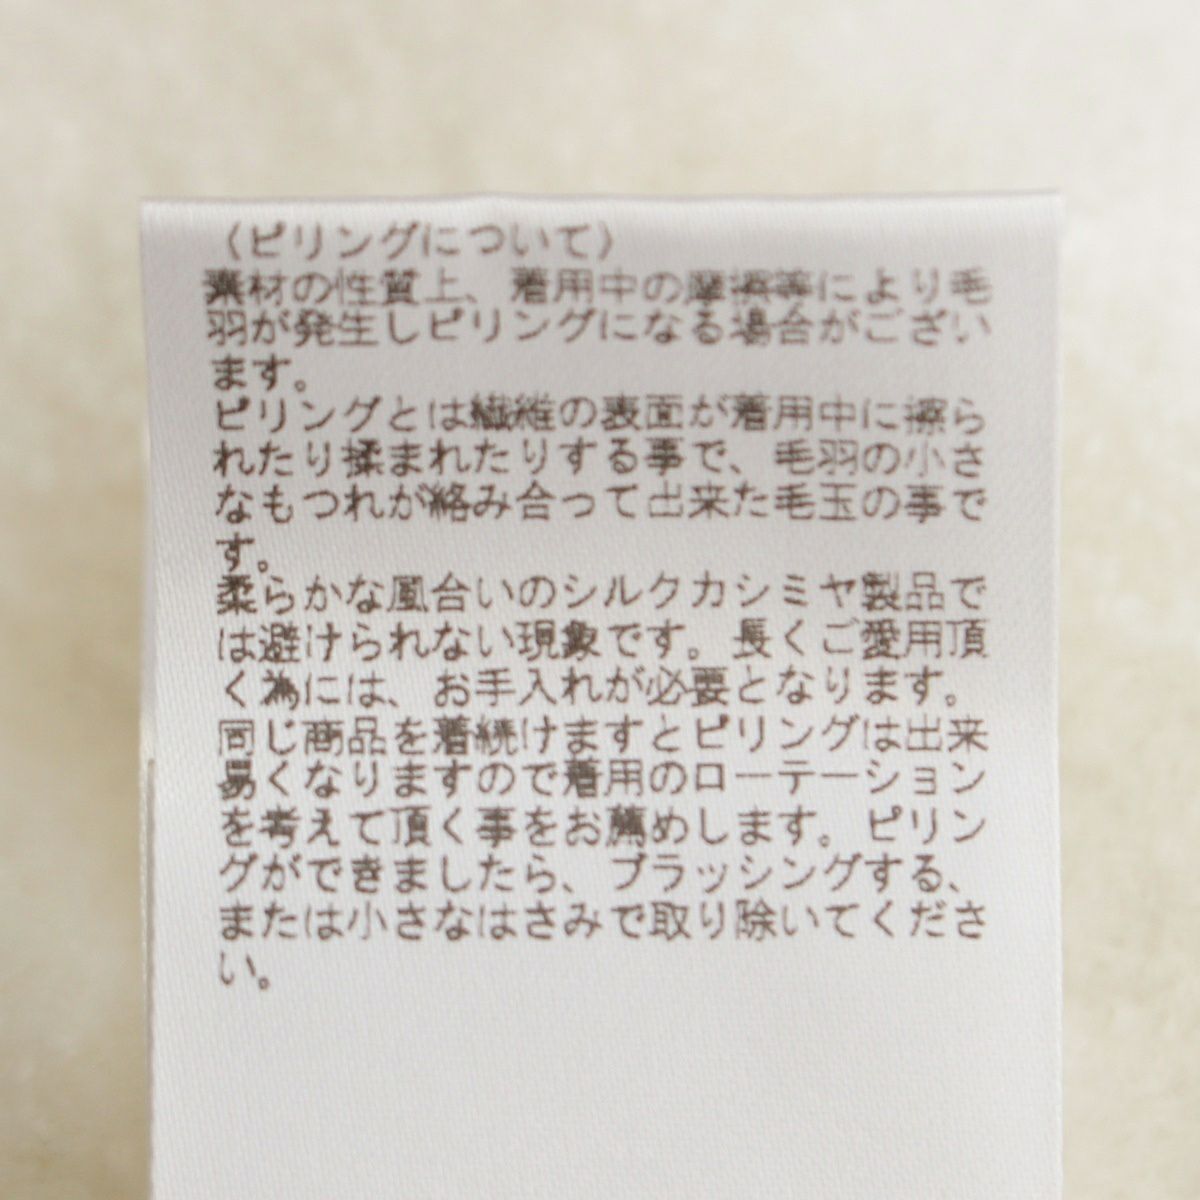 〈ピリングについて〉
素材の性質上、着用中の摩擦等により毛
羽が発生しピリングになる場合がござい
ます。
ピリングとは繊維の表面が着用中に擦ら
れたり揉まれたりする事で、毛羽の小さ
なもつれが絡み合って出来た毛玉の事で
す。
柔らかな風合いのシルクカシミヤ製品で
は避けられない現象です。長くご愛用頂
く為には、お手入れが必要となります。
同じ商品を着続けますとピリングは出来
易くなりますので着用のローテーション
を考えて頂く事をお薦めします。ピリン
グができましたら、ブラッシングする、
または小さなはさみで取り除いてくださ
い。